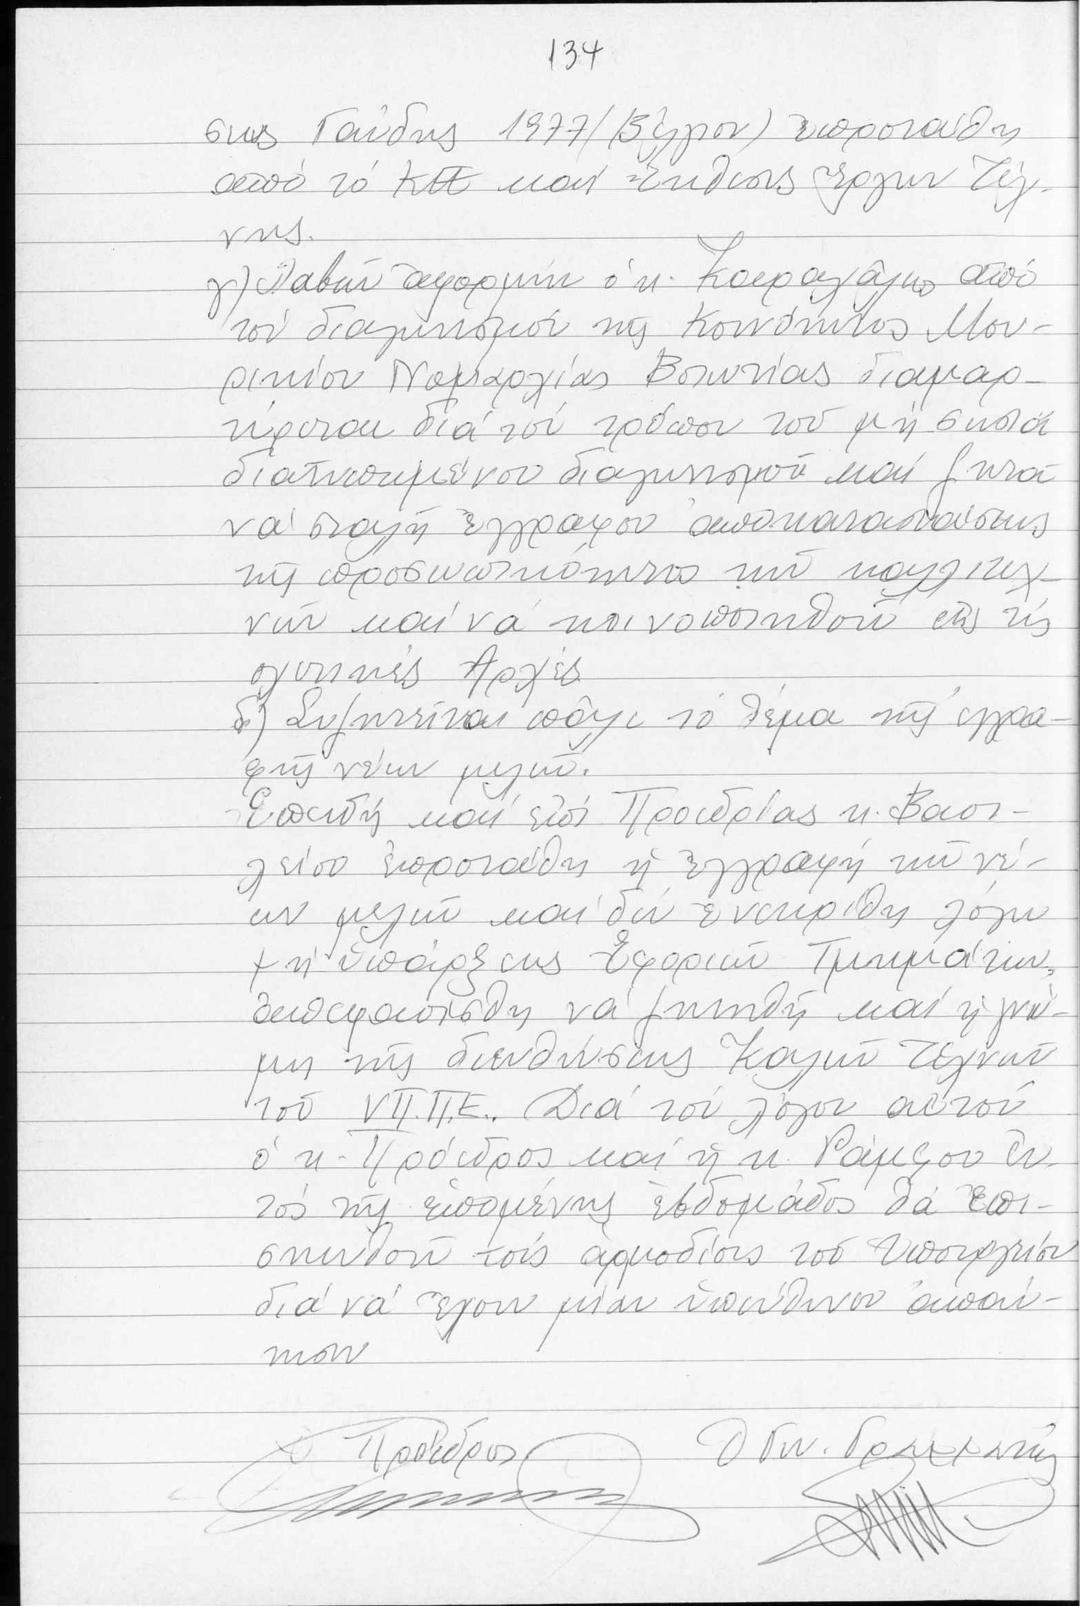 134
σεως Γάνδης 1977 (Βέλγιον) ἐπροτάθη
ἀπό τό ΚΠΕ καί ἔκθεσις ἔργων Τέχ-
νης.
γ) Λαβών ἀφορμήν ὁ κ. ἀπό
τόν διαγωνισμόν τῆς Κοινότητος Μου-
ρικίου Νομαρχίας Βοιωτίας διαμαρ-
τύρεται διά τόν τρόπον τοῦ μή σωστά
διατυπωμένου διαγωνισμοῦ καί ζητᾶ
νά σταλῆ ἔγγραφον ἀποκαταστάσεως
τῆς προσωπικότητος τῶν καλλιτεχ-
νῶν καί νά κοινοποιηθοῦν εἰς τίς
σχετικές Ἀρχές
δ) Συζητεῖται πάλι τό θέμα τῆς ἐγγρα-
φῆς νέων μελῶν.
Ἐπειδή καί ἐπί Προεδρίας κ. Βασι-
λείου ἐπροτάθη ἡ ἐγγραφή τῶν νέ-
ων μελῶν καί δέν ἐνεκρίθη λόγω
μή ὑπάρξεως Ἐφοριῶν Τμημάτων,
ἀπεφασίσθη νά ζητηθῆ καί ἡ γνώ-
μη τῆς διευθύνσεως Καλῶν Τεχνῶν
τοῦ ΥΠ.Π.Ε. Διά τόν λόγον αὐτόν
ὁ κ. Πρόεδρος καί ἡ κ. Ράμφου ἐν-
τός τῆς ἑπομένης ἑβδομάδος θά ἐπι-
σκεφθοῦν τούς ἁρμοδίους τοῦ Ὑπουργείου
διά νά ἔχουν μίαν ὑπεύθυνον ἀπάν-
τησιν
Ὁ Πρόεδρος Ὁ Γεν. Γραμματεύς